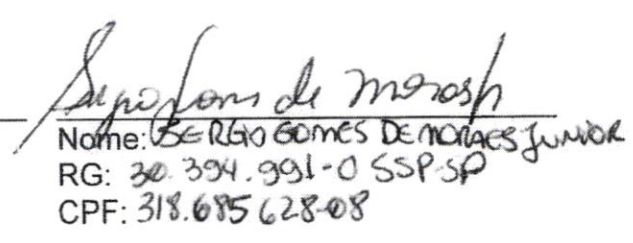 Sergio Gomes de Moraes Jr
Nome: SERGIO GOMES DE MORAES JUNIOR
RG: 30.394.991-0 SSP-SP
CPF: 318.685 628-08